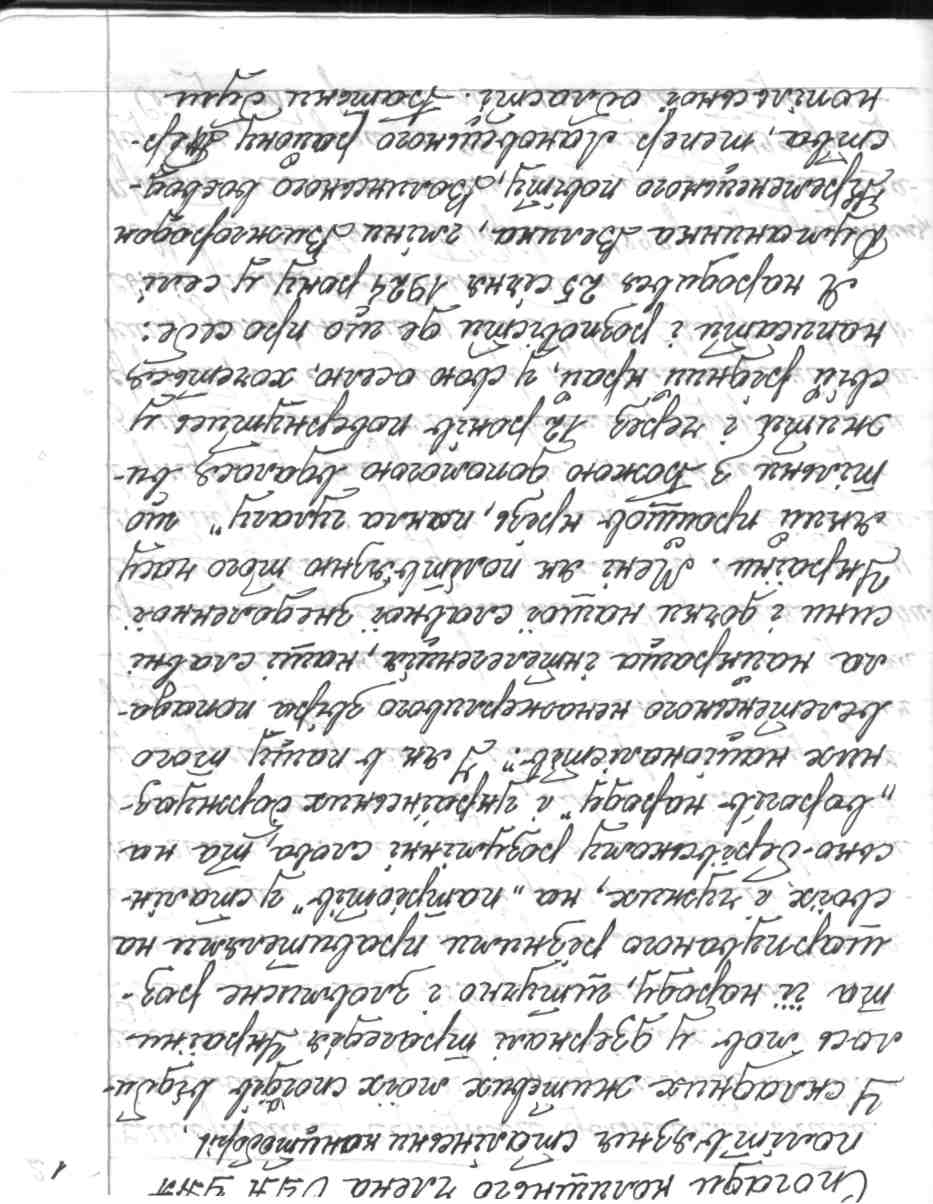 1
Спогади колишнього члена ОУН УПА
політв'язня сталінськи концтаборів.
У складних життєвих моїх спогадів відби-
лось мов у дзеркалі трагедія України
та її народу, штучно і зловмисне роз-
шарпуваного різними правителями на
своїх і чужих, на „патріотів" у сталін-
сько-беріївському розумінні слова, та на
„ворогів народу" і українських буржуаз-
них націоналістів". І як в пащу того
велетенського ненажерливого звіра попада-
ла найкраща інтелегенція, наші славні
сини і дочки нашої славної знедоленної
України. Мені як політв'язню того часу
який пройшов крізь „пекла гулагу" що
тільки з Божою допомогою вдалося ви-
жити і через 12 років повернутись у
свій рідний край, у свою оселю, хочеться
написати і розповісти де що про себе:
Я народився 25 січня 1924 року у селі
Куманинка Велика, гміни Вижгородок
Кременецького повіту, Волинського воєвод-
ства, тепер Лановецького району Тер-
нопільської області. Батьки були